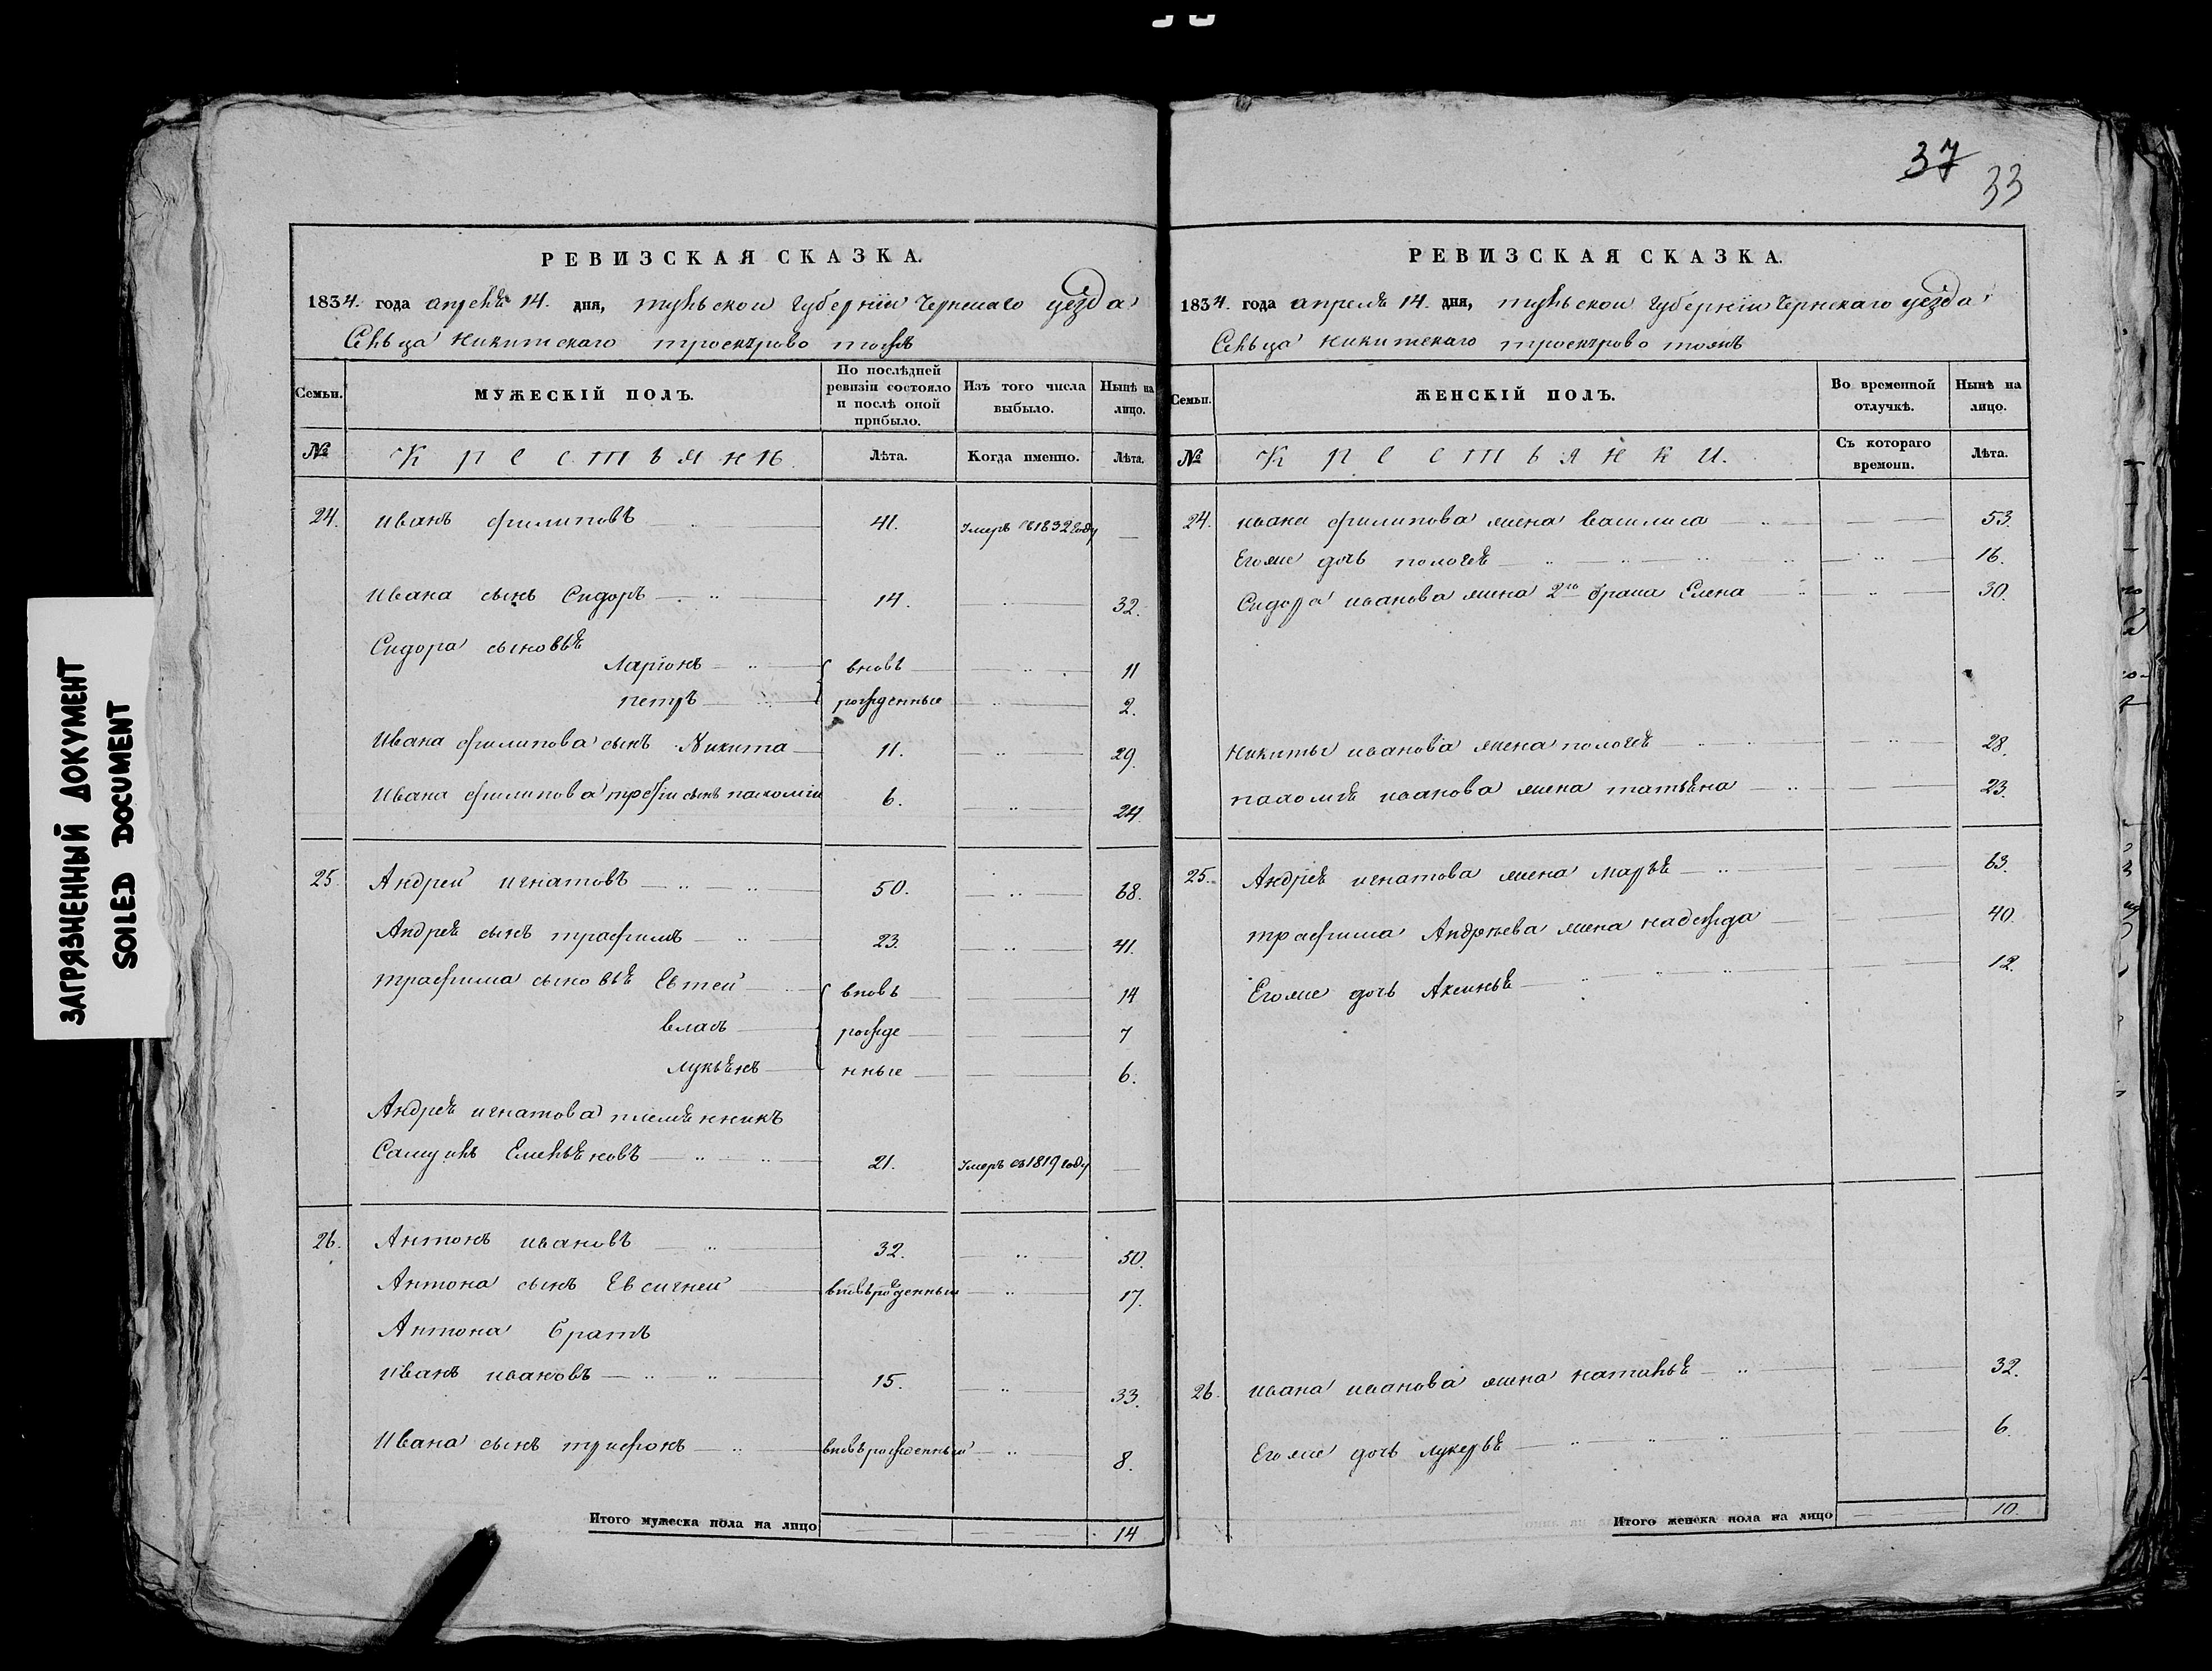 37
33
ЗАГРЯЗНЕННЫЙ ДОКУМЕНТ
SOILED DOCUMENT
РЕВИЗСКАЯ СКАЗКА.
1834. года апреля 14. дня, тульской губернии Чернскаго уезда
Сельца никитскаго троекурово тожъ
Семьи. МУЖЕСКІЙ ПОЛЪ. По послѣдней ревизіи состояло и послѣ оной прибыло. Изъ того числа выбыло. Нынѣ на лицо.
№ Крестьяни Лѣта. Когда именно. Лѣта.
24. иванъ филиповъ 41. Умеръ въ 1832 году
ивана сынъ Сидоръ 14. 32.
Сидора сыновья
Ларіонъ вновь 11
петръ рожденные 2.
ивана филипова сынъ Никита 11. 29.
ивана филипова трети сынъ пахоми 6. 24.
25. Андрей игнатовъ 50. 68.
Андрея сынъ трафимъ 23. 41.
трафима сыновья Евтей вновь 14
власъ рожде 7
лукьянъ нные 6.
Андрея игнатова племянникъ
Самуилъ Емельяновъ 21. Умеръ въ 1819 году
26. Антонъ ивановъ 32. 50.
Антона сынъ Евсигней вновьрожденный 17.
Антона братъ
иванъ ивановъ 15. 33.
ивана сынъ трифонъ вновьрожденный 8.
Итого мужеска пола на лицо 14
РЕВИЗСКАЯ СКАЗКА.
1834. года апреля 14. дня, тульской губернии Чернскаго уезда
Сельца никитскаго троекурово тожъ
Семьи. ЖЕНСКІЙ ПОЛЪ. Во временной отлучкѣ. Нынѣ на лицо.
№ Крестьянки. Съ котораго времени. Лѣта.
24. ивана филипова жена василиса 53.
Егоже дочь пологея 16.
Сидора иванова жена 2го брака Елена 30.
никиты иванова жена пологея 28.
пахомия иванова жена татьяна 23.
25. Андрея игнатова жена марья 63.
трафима Андреева жена надежда 40.
Егоже дочь Аксинья 12.
26. ивана иванова жена наталья 32.
Егоже дочь лукерья 6.
Итого женска пола на лицо 10.